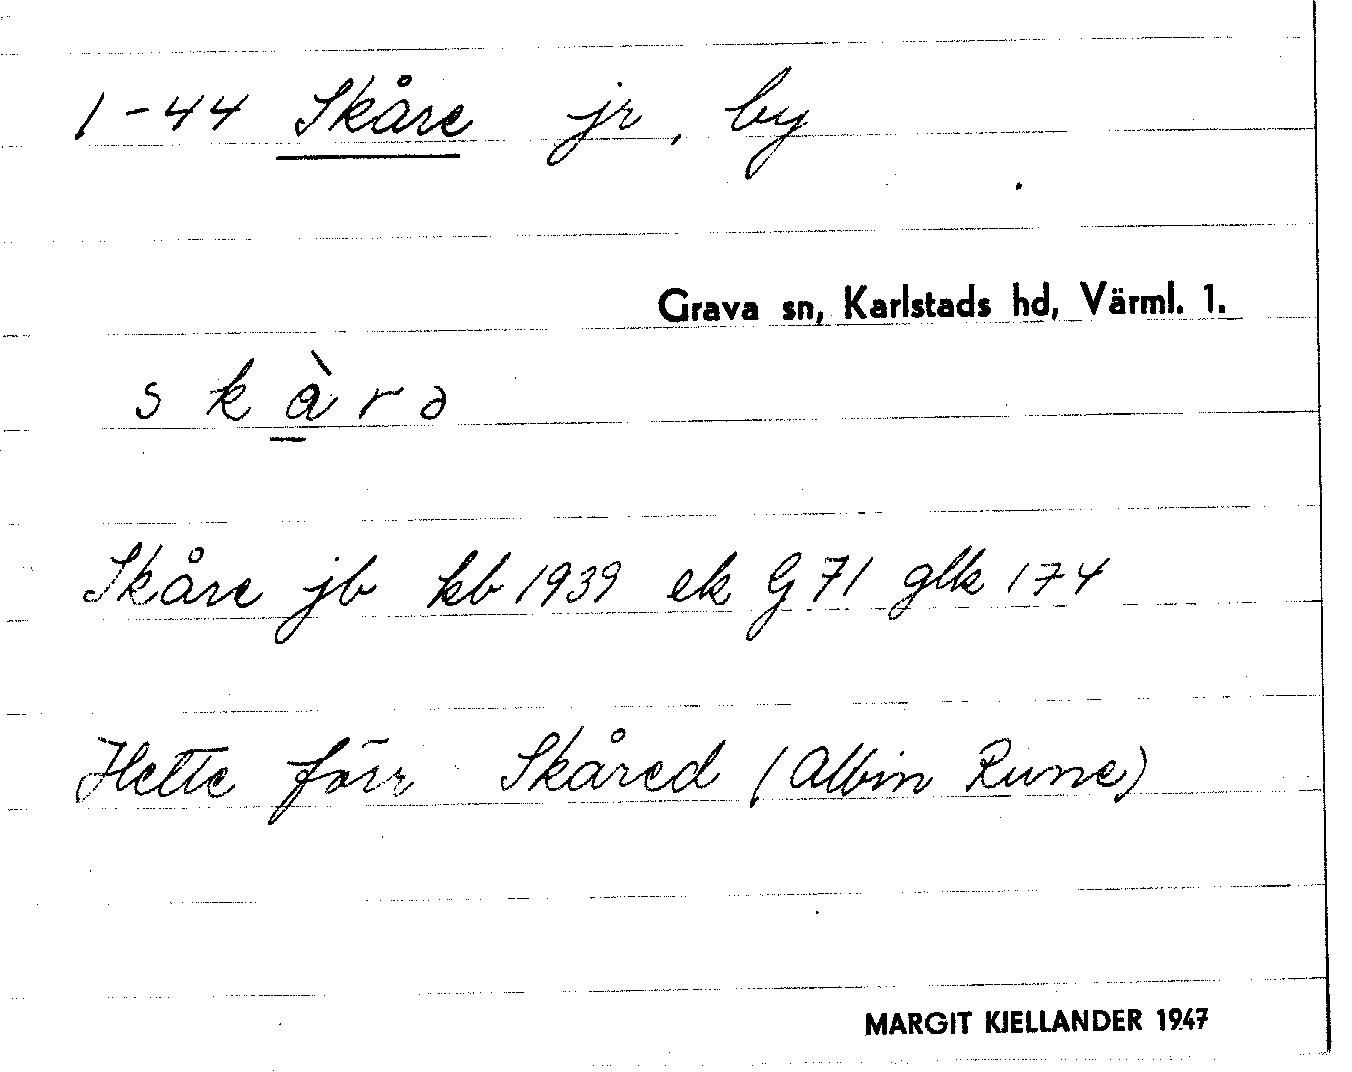 1-44 Skåre jr, by
Grava sn, Karlstads hd, Värml. 1.
s k à r ə
Skåre jb kb 1939 ek G 71 glk 174
Hette förr Skåred (Albin Rune)
MARGIT KJELLANDER 1947